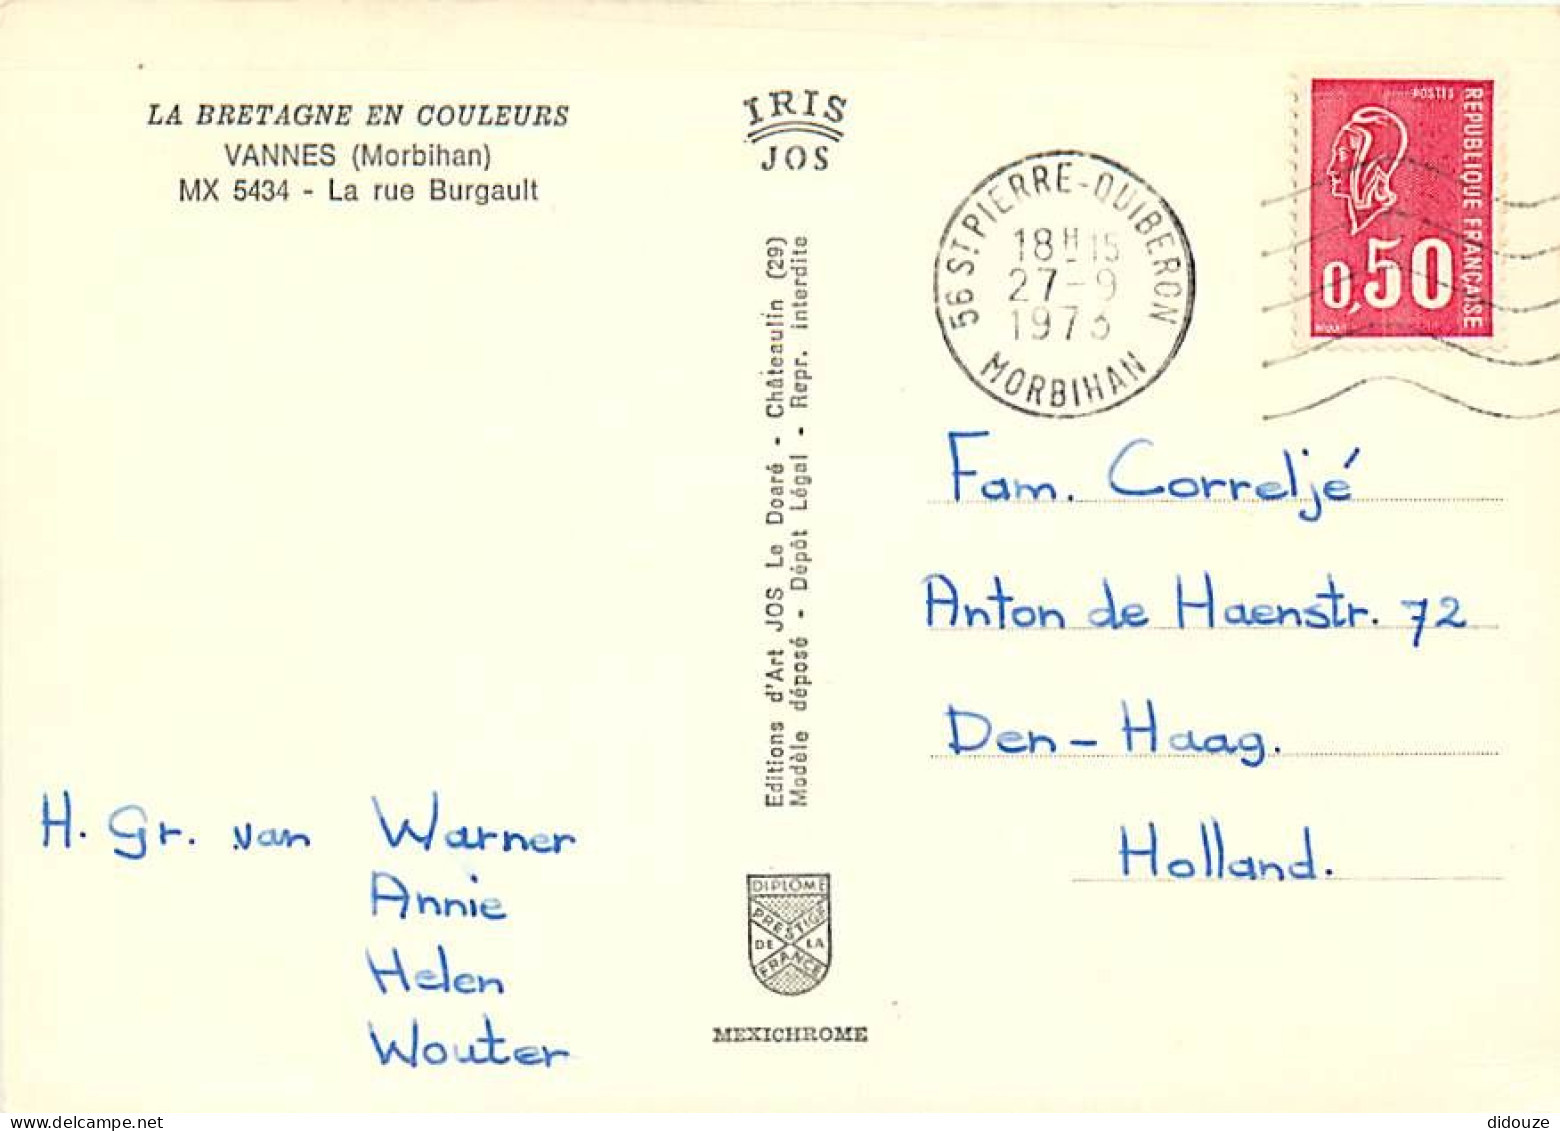 LA BRETAGNE EN COULEURS
VANNES (Morbihan)
MX 5434 - La rue Burgault
IRIS
JOS
Editions d'Art JOS Le Doaré - Châteaulin (29)
Modèle déposé - Dépôt Légal - Repr. interdite
DIPLÔME
PRESTIGE
DE LA
FRANCE
MEXICHROME
56 ST PIERRE-QUIBERON
18H15
27-9
1973
MORBIHAN
POSTES
REPUBLIQUE FRANÇAISE
0,50
Fam. Correljé
Anton de Haenstr. 72
Den-Haag.
Holland.
H. Gr. van Warner
Annie
Helen
Wouter
didouze